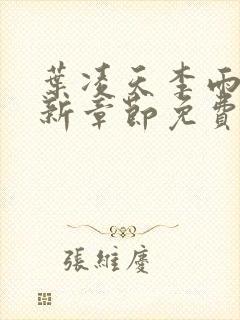 葉凌天李雨
新章節免費
張維慶